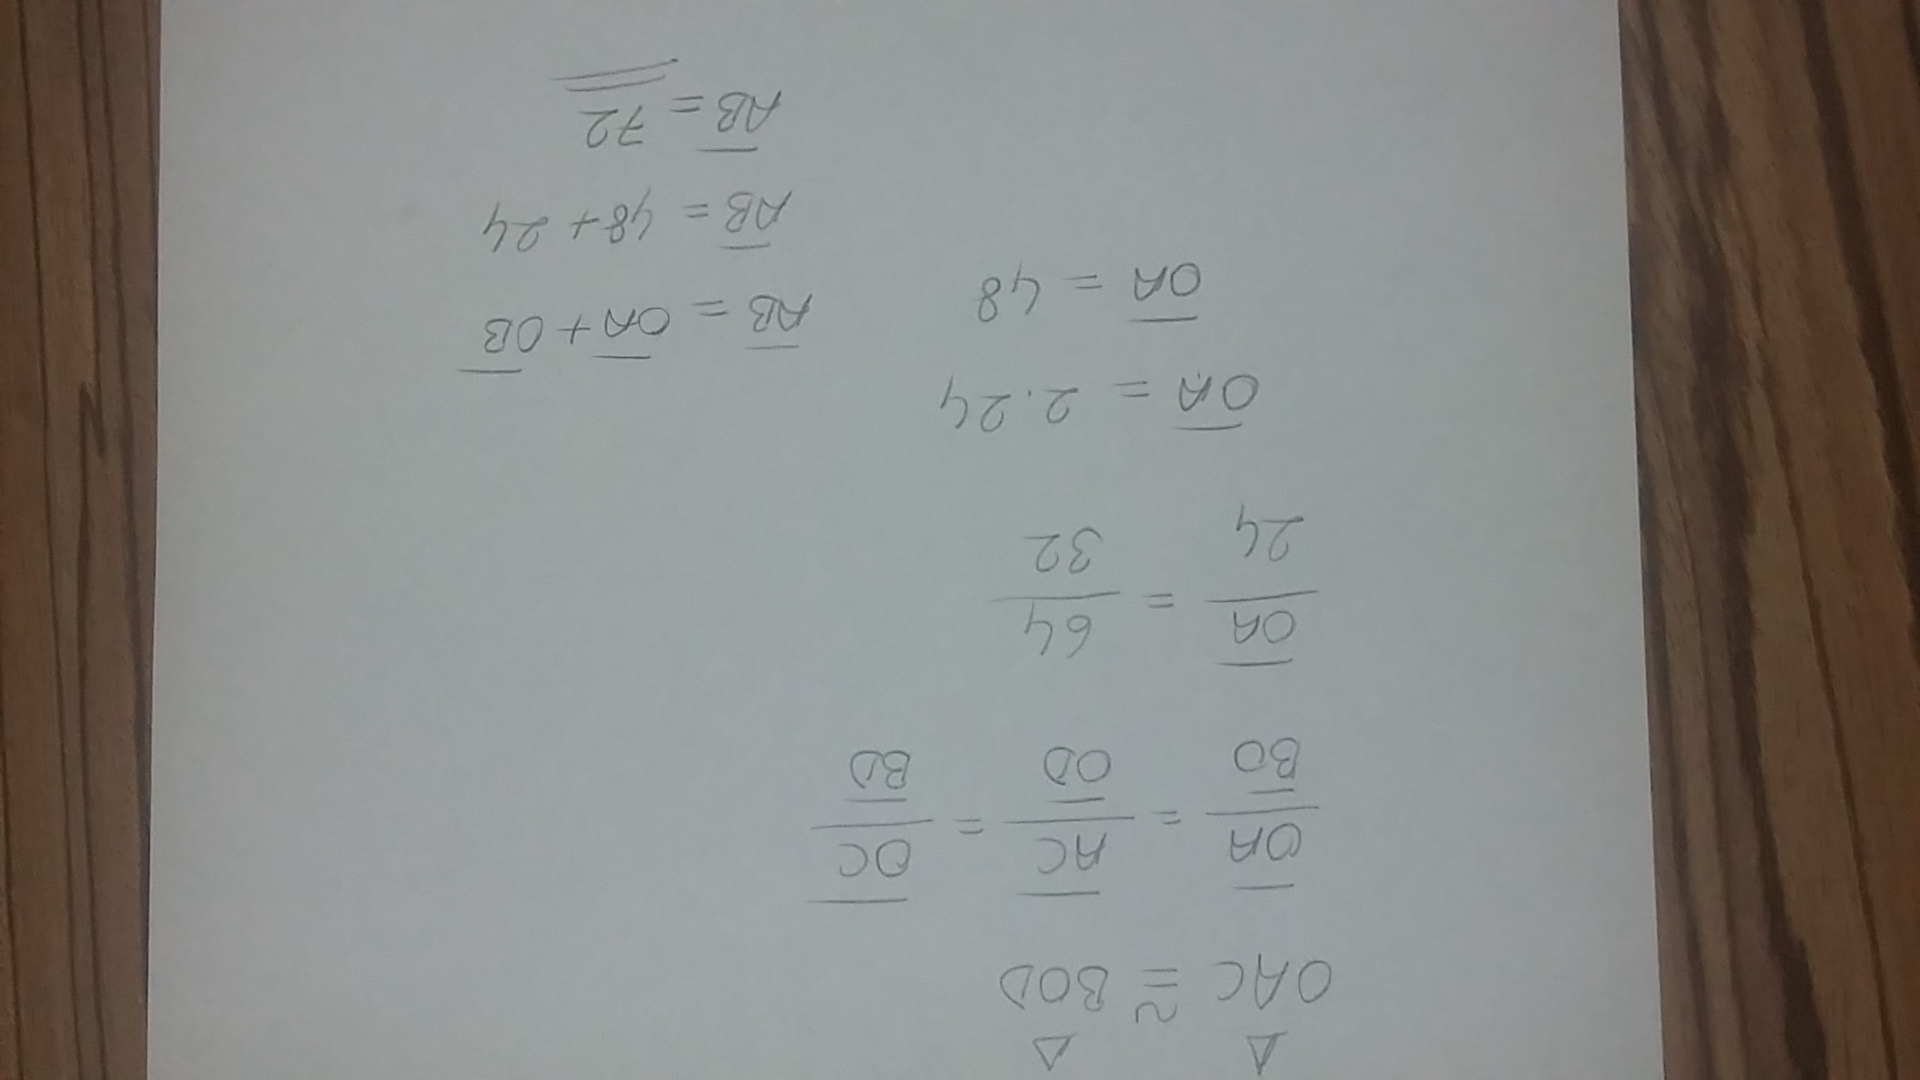 Δ Δ
OAC ≅ BOD
OA/BO = AC/OD = OC/BD
OA/24 = 64/32
OA = 2.24
OA = 48
AB = OA + OB
AB = 48 + 24
AB = 72